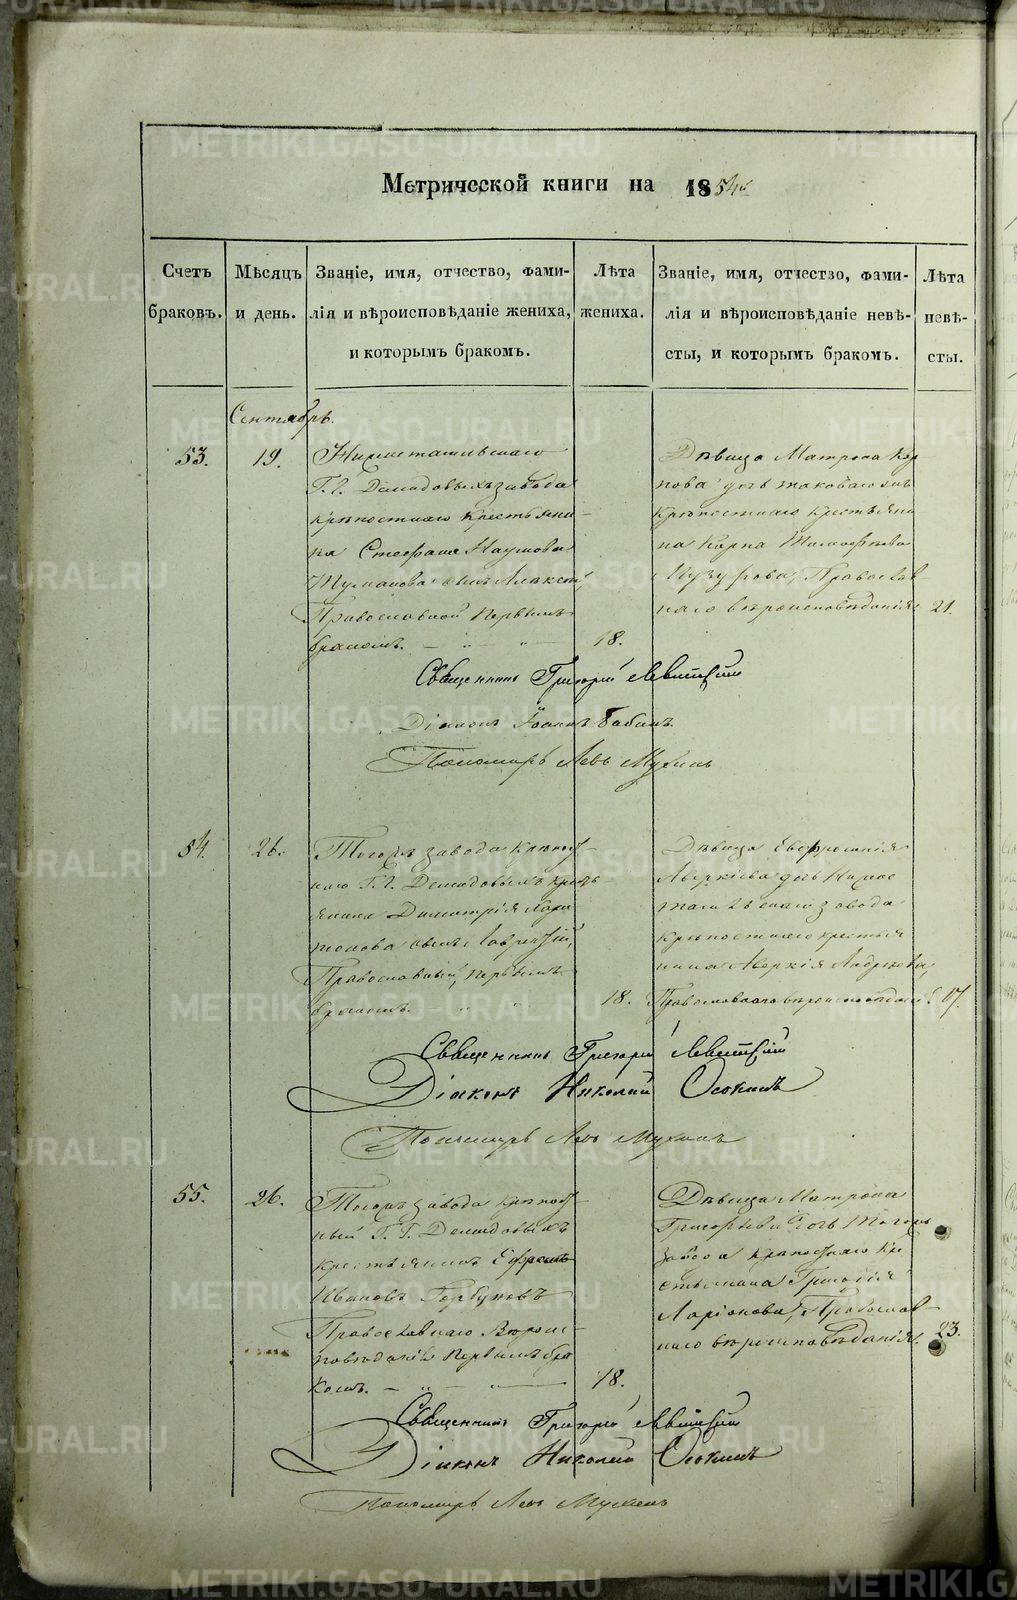 Метрической книги на 1854й
Счетъ браковъ.
Мѣсяцъ и день.
Званіе, имя, отчество, фами-
лія и вѣроисповѣданіе жениха,
и которымъ бракомъ.
Лѣта жениха.
Званіе, имя, отчество, фами-
лія и вѣроисповѣданіе невѣ-
сты, и которымъ бракомъ.
Лѣта невѣ-
сты.
Сентябрь.
53.
19.
Нижнетагильскаго
Г.г. Демидовыхъ завода
крѣпостнаго крестьяни-
на Стефана Наумова
Туманова сынъ Алексѣй,
Православной первымъ
бракомъ.
18.
Дѣвица Матрона Кар
пова дочь таковаго же
крѣпостнаго крестьяни
на Карпа Тимофѣева
Музурова, Православ-
наго вѣроисповѣданія
21.
Священникъ Григорій Левитскій
Діаконъ Іоаннъ Бабинъ
Пономарь Левъ Мухинъ
54.
26.
Тогожъ завода крѣпост
наго Г.г. Демидовыхъ кресть
янина Димитрія Хари
тонова сынъ Лаврентій,
Православный, первымъ
бракомъ.
18.
Дѣвица Евфросинія
Аверкіева дочь Нижне
тагильскаго завода
крѣпостнаго крестья
нина Аверкія Андреева,
Православнаго вѣроисповѣданія.
17.
Священникъ Григорій Левитскій
Діаконъ Николай Осокинъ
Пономарь Левъ Мухинъ
55.
26.
Тогожъ завода крѣпост
ный Г.г. Демидовыхъ
крестьянинъ Ефремъ
Ивановъ Горбуновъ
Православнаго Вѣроис-
повѣданія первымъ бра
комъ.
18.
Дѣвица Матрона
Григорьева дочь Тогожъ
завода крѣпостнаго кре
стьянина Григорія
Ларіонова, Православ-
наго вѣроисповѣданія.
23.
Священникъ Григорій Левитскій
Діаконъ Николай Осокинъ
Пономарь Левъ Мухинъ
METRIKI.GASO-URAL.RU